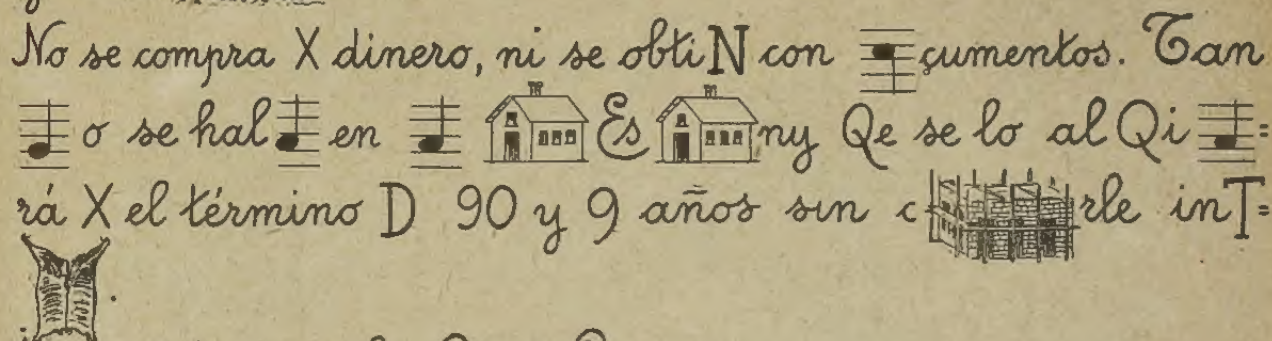 No se compra X dinero, ni se obtiN con çumentos. Tan
o se hal en Es ny Qe se lo al Qi =
rá X el término D 90 y 9 años sin c irle inT=
.